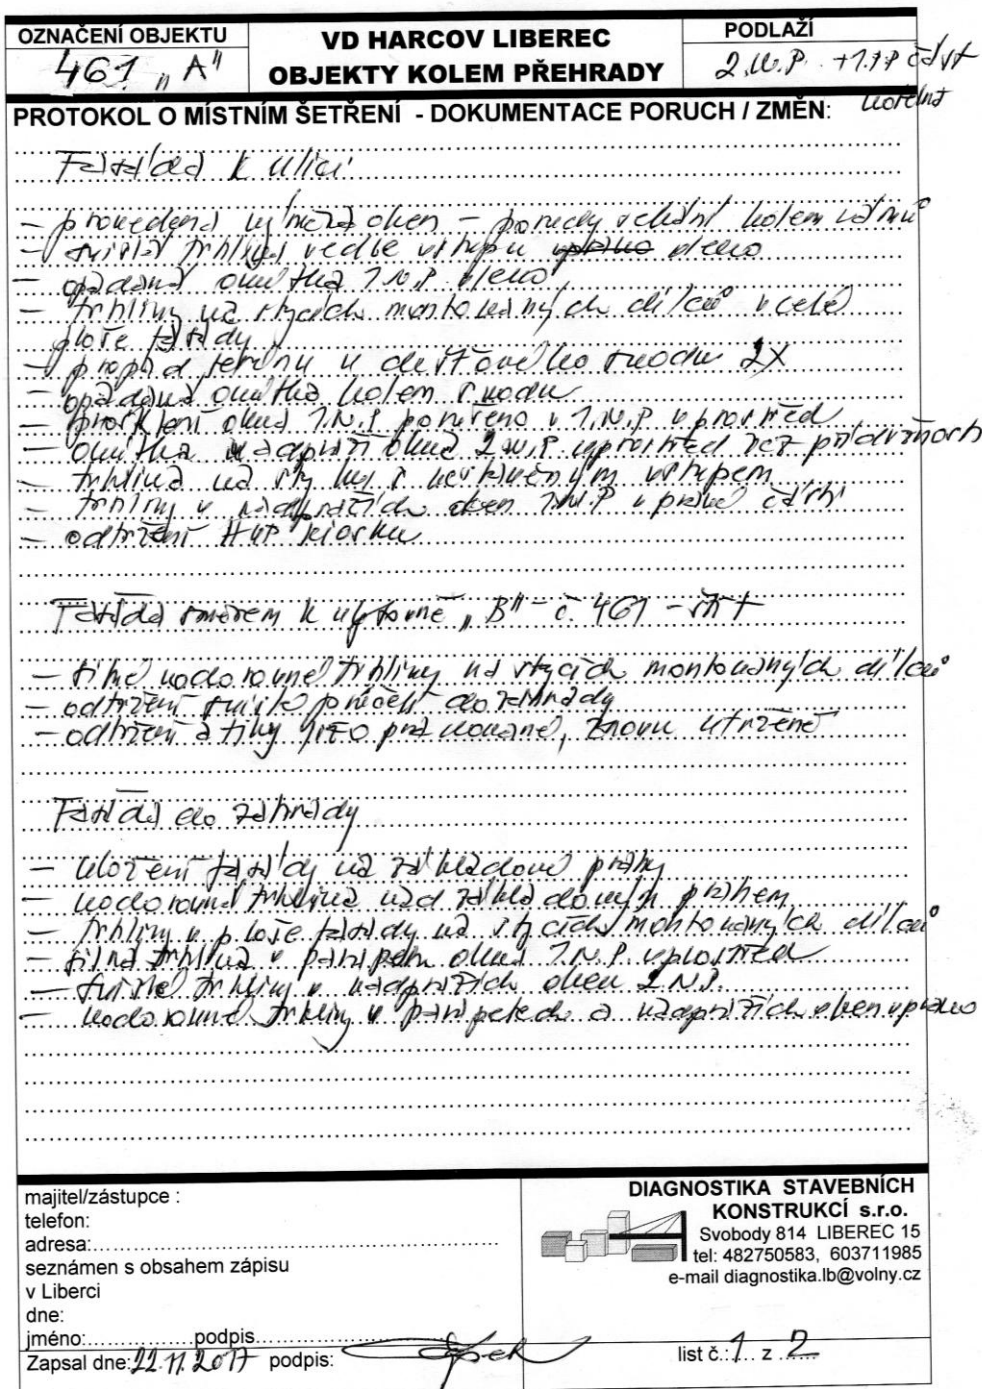 OZNAČENÍ OBJEKTU
461 "A"
VD HARCOV LIBEREC
OBJEKTY KOLEM PŘEHRADY
PODLAŽÍ
2.N.P. +1.PP část
kotelna
PROTOKOL O MÍSTNÍM ŠETŘENÍ - DOKUMENTACE PORUCH / ZMĚN:
Fasáda k ulici
- provedena výměna oken - poruchy kolem rámů
- svislá trhlina vedle vstupu vpravo vlevo
- opadaná omítka 1.N.P. vlevo
- trhliny na stycích montovaných dílců v celé
ploše fasády
- propad terénu u dešťového svodu 2X
- opadaná omítka kolem svodu
- prosklení okna 1.N.P porušeno v 1.N.P uprostřed
- omítka nadpraží okna 2.N.P uprostřed bez přídržnosti
- trhlina na styku s vstupem
- trhliny v nadpražích oken 1.N.P v pravé části
- odtržení HUP kiosku
Fasáda směrem k "B" - č. 461 - štít
- silné vodorovné trhliny na stycích montovaných dílců
- odtržení průčelí do zahrady
- odtržení atiky znovu utržené
Fasáda do zahrady
- uložení fasády na základové prahy
- vodorovná trhlina nad základovým prahem
- trhliny v ploše fasády na stycích montovaných dílců
- silná trhlina v parapetu okna 1.N.P. uprostřed
- svislé trhliny v nadpražích oken 2.N.P.
- vodorovné trhliny v parapetech a nadpražích oken vpravo
majitel/zástupce :
telefon:
adresa:
seznámen s obsahem zápisu
v Liberci
dne:
jméno: podpis
Zapsal dne: 22.11.2017 podpis:
DIAGNOSTIKA STAVEBNÍCH
KONSTRUKCÍ s.r.o.
Svobody 814 LIBEREC 15
tel: 482750583, 603711985
e-mail diagnostika.lb@volny.cz
list č.: 1 z 2